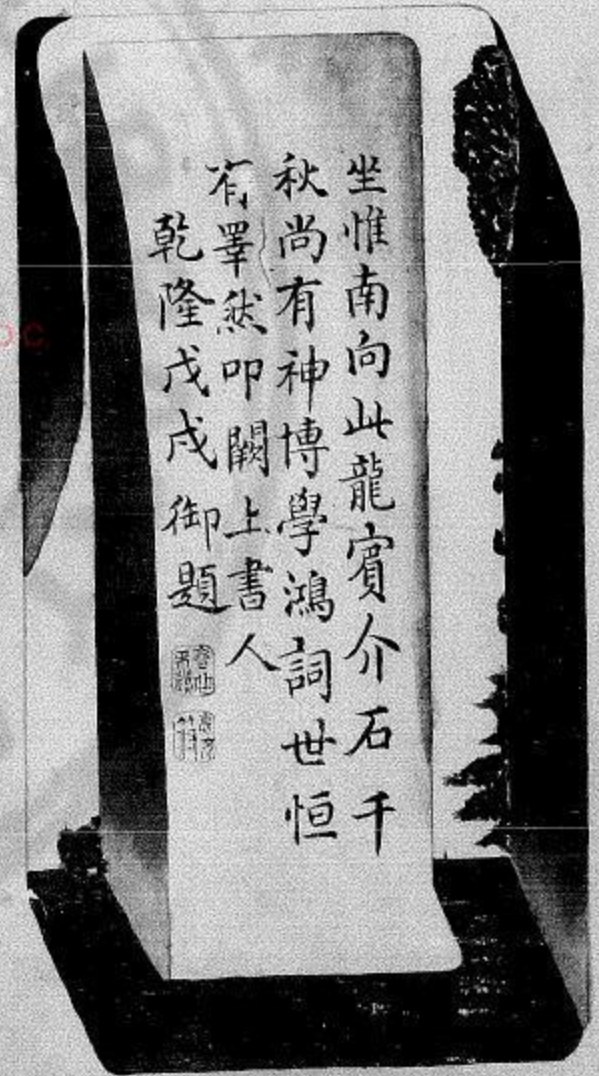 坐惟南向此龍賓介石千
秋尚有神博學鴻詞世恒
有睪然叩闕上書人
乾隆戊戌御題